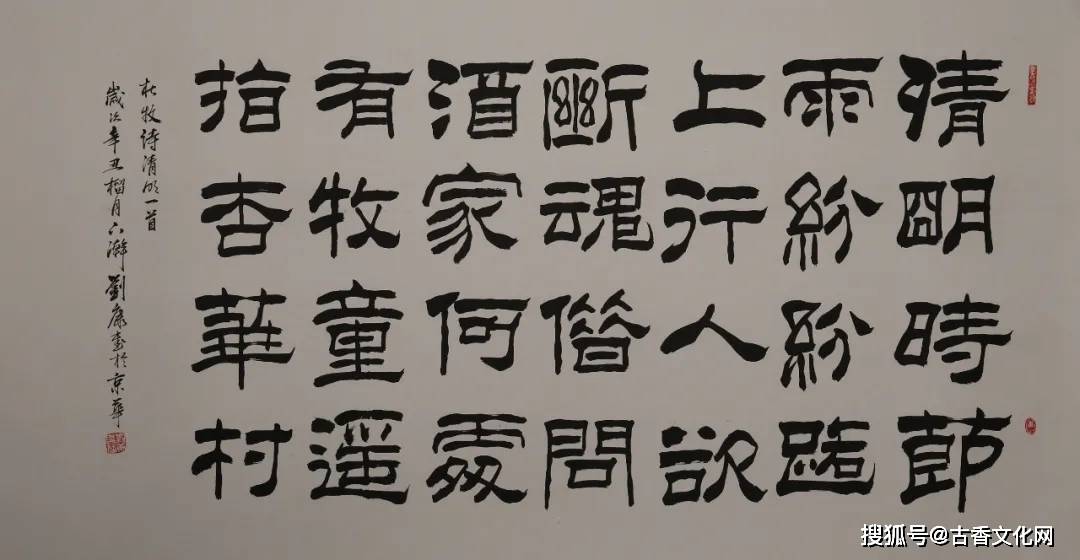 清朙時節
雨紛紛路
上行人欲
斷魂借問
酒家何處
有牧童遥
指杏華村
杜牧诗清明一首
歲次辛丑榴月下澣劉康書於京華
搜狐号@古香文化网